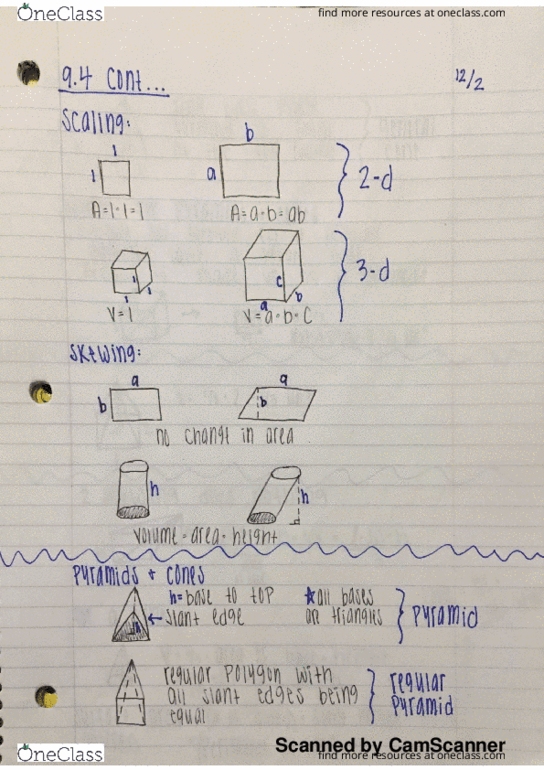 OneClass
find more resources at oneclass.com
9.4 Cont...
12/2
Scaling:
1
b
1
a
2-d
A=1·1=1
A=a·b=ab
3-d
1
1
1
c
b
a
V=1
V=a·b·C
Skewing:
a
a
b
b
no change in area
h
h
volume=area·height
Pyramids + Cones
h=base to top
★all bases
←slant edge
are triangles
Pyramid
h
regular Polygon with
all slant edges being
equal
regular
Pyramid
Scanned by CamScanner
OneClass
find more resources at oneclass.com